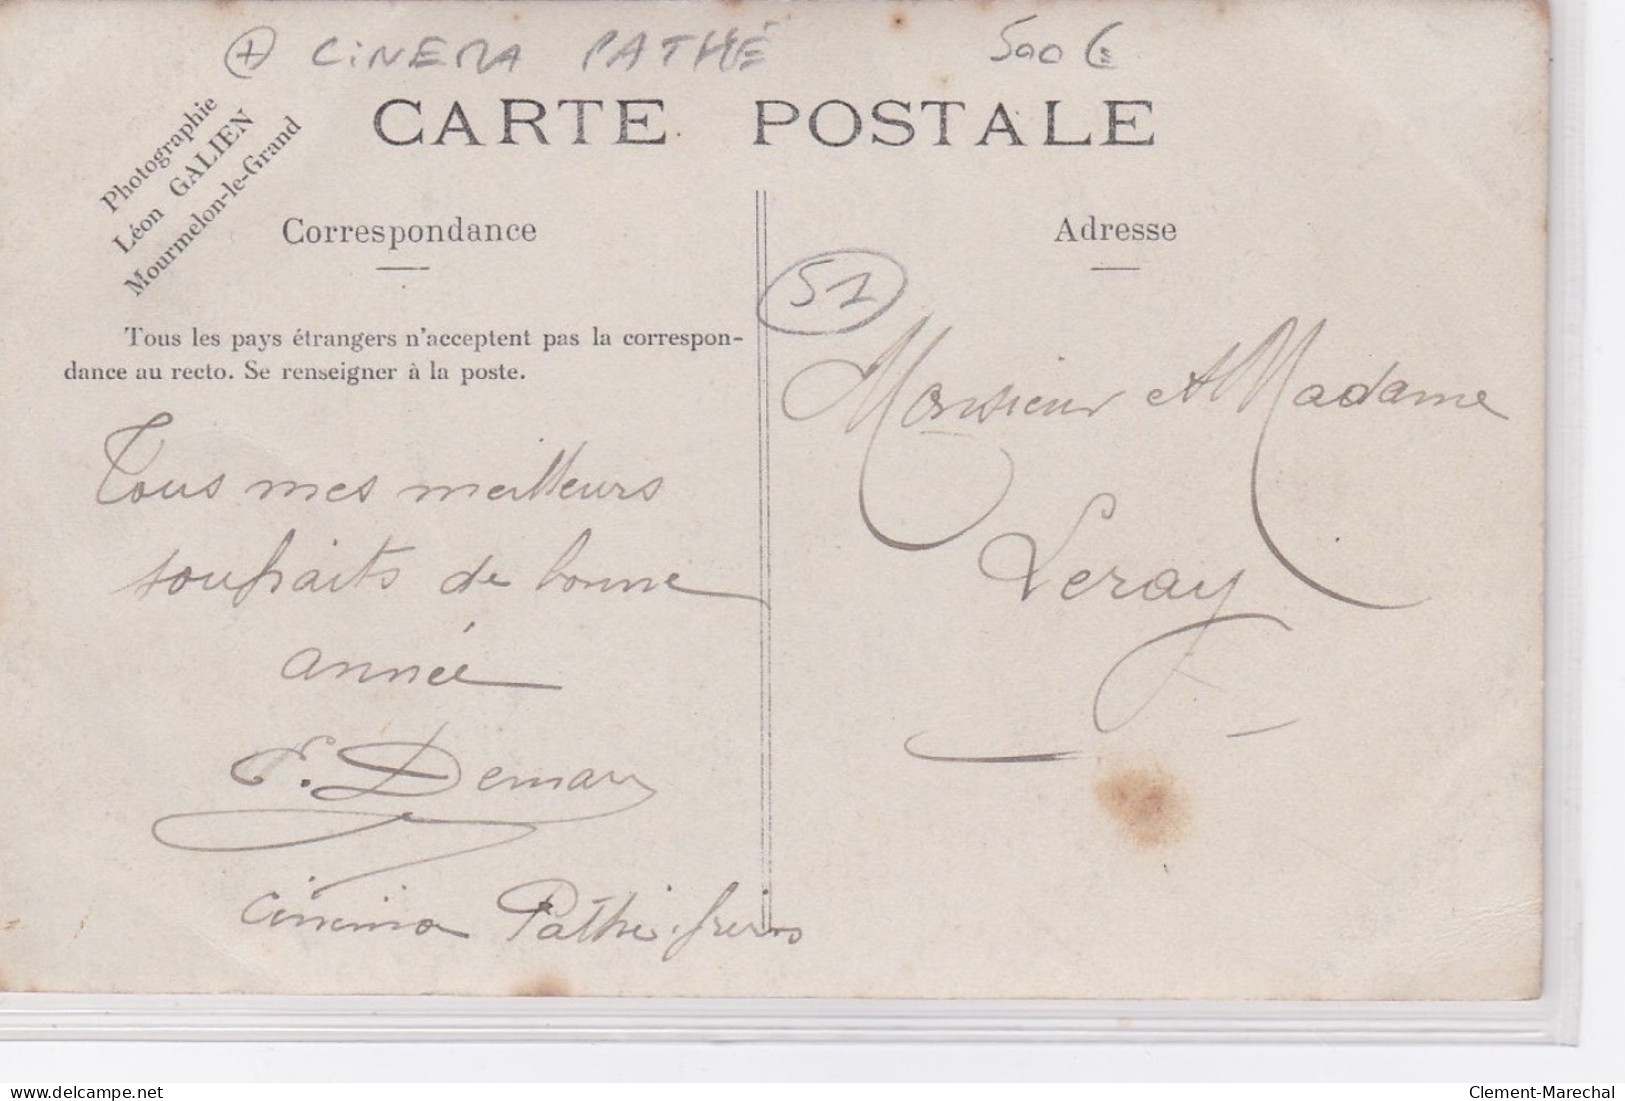 + CINEMA PATHÉ 500 €
CARTE POSTALE
Photographie
Léon GALIEN
Mourmelon-le-Grand
Correspondance
Adresse
51
Tous les pays étrangers n'acceptent pas la correspon-
dance au recto. Se renseigner à la poste.
Tous mes meilleurs
souhaits de bonne
année
Cinema Pathé frères
Monsieur et Madame
Leray
delcampe.net
Clement-Marechal